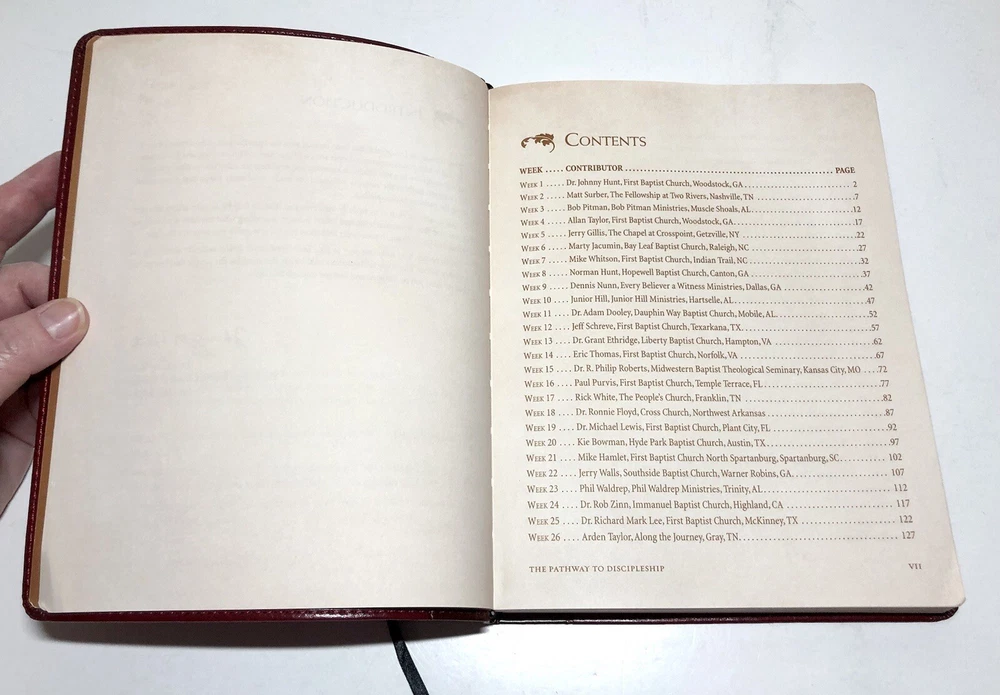 CONTENTS
WEEK ..... CONTRIBUTOR ........................................................ PAGE
WEEK 1 ..... Dr. Johnny Hunt, First Baptist Church, Woodstock, GA ............................ 2
WEEK 2 ..... Matt Surber, The Fellowship at Two Rivers, Nashville, TN ..........................7
WEEK 3 ..... Bob Pitman, Bob Pitman Ministries, Muscle Shoals, AL..........................12
WEEK 4 ..... Allan Taylor, First Baptist Church, Woodstock, GA..............................17
WEEK 5 ..... Jerry Gillis, The Chapel at Crosspoint, Getzville, NY .............................22
WEEK 6 ..... Marty Jacumin, Bay Leaf Baptist Church, Raleigh, NC ..........................27
WEEK 7 ..... Mike Whitson, First Baptist Church, Indian Trail, NC ...........................32
WEEK 8 ..... Norman Hunt, Hopewell Baptist Church, Canton, GA ..........................37
WEEK 9 ..... Dennis Nunn, Every Believer a Witness Ministries, Dallas, GA ...................42
WEEK 10 .... Junior Hill, Junior Hill Ministries, Hartselle, AL................................47
WEEK 11 .... Dr. Adam Dooley, Dauphin Way Baptist Church, Mobile, AL......................52
WEEK 12 .... Jeff Schreve, First Baptist Church, Texarkana, TX...............................57
WEEK 13 .... Dr. Grant Ethridge, Liberty Baptist Church, Hampton, VA .......................62
WEEK 14 .... Eric Thomas, First Baptist Church, Norfolk, VA ................................67
WEEK 15 .... Dr. R. Philip Roberts, Midwestern Baptist Theological Seminary, Kansas City, MO ....72
WEEK 16 .... Paul Purvis, First Baptist Church, Temple Terrace, FL...........................77
WEEK 17 .... Rick White, The People's Church, Franklin, TN ................................82
WEEK 18 .... Dr. Ronnie Floyd, Cross Church, Northwest Arkansas ...........................87
WEEK 19 .... Dr. Michael Lewis, First Baptist Church, Plant City, FL ..........................92
WEEK 20 .... Kie Bowman, Hyde Park Baptist Church, Austin, TX............................97
WEEK 21 .... Mike Hamlet, First Baptist Church North Spartanburg, Spartanburg, SC........... 102
WEEK 22 .... Jerry Walls, Southside Baptist Church, Warner Robins, GA....................... 107
WEEK 23 .... Phil Waldrep, Phil Waldrep Ministries, Trinity, AL.............................. 112
WEEK 24 .... Dr. Rob Zinn, Immanuel Baptist Church, Highland, CA ......................... 117
WEEK 25 .... Dr. Richard Mark Lee, First Baptist Church, McKinney, TX ...................... 122
WEEK 26 .... Arden Taylor, Along the Journey, Gray, TN.................................... 127
THE PATHWAY TO DISCIPLESHIP VII